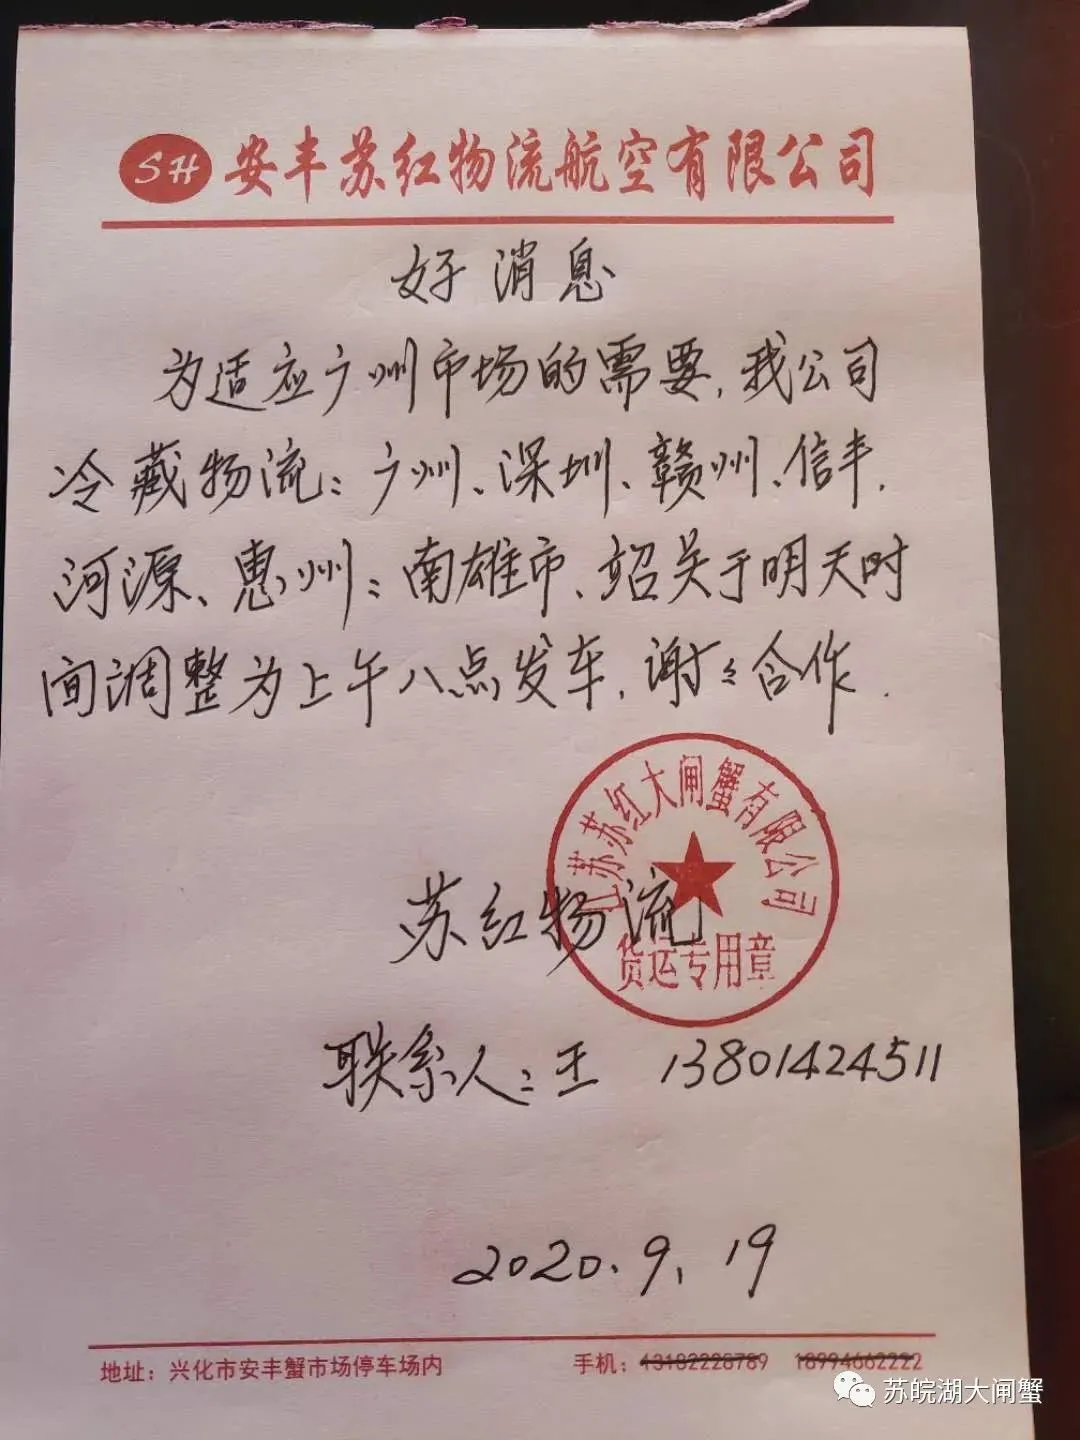 SH 安丰苏红物流航空有限公司
好消息
为适应广州市场的需要,我公司
冷藏物流：广州、深圳、赣州、信丰.
河源、惠州：南雄市、韶关于明天时
间调整为上午八点发车,谢々合作.
江苏苏红大闸蟹有限公司
货运专用章
苏红物流
联系人：王 13801424511
2020.9.19
地址：兴化市安丰蟹市场停车场内 手机：13182228789 18994662222
苏皖湖大闸蟹